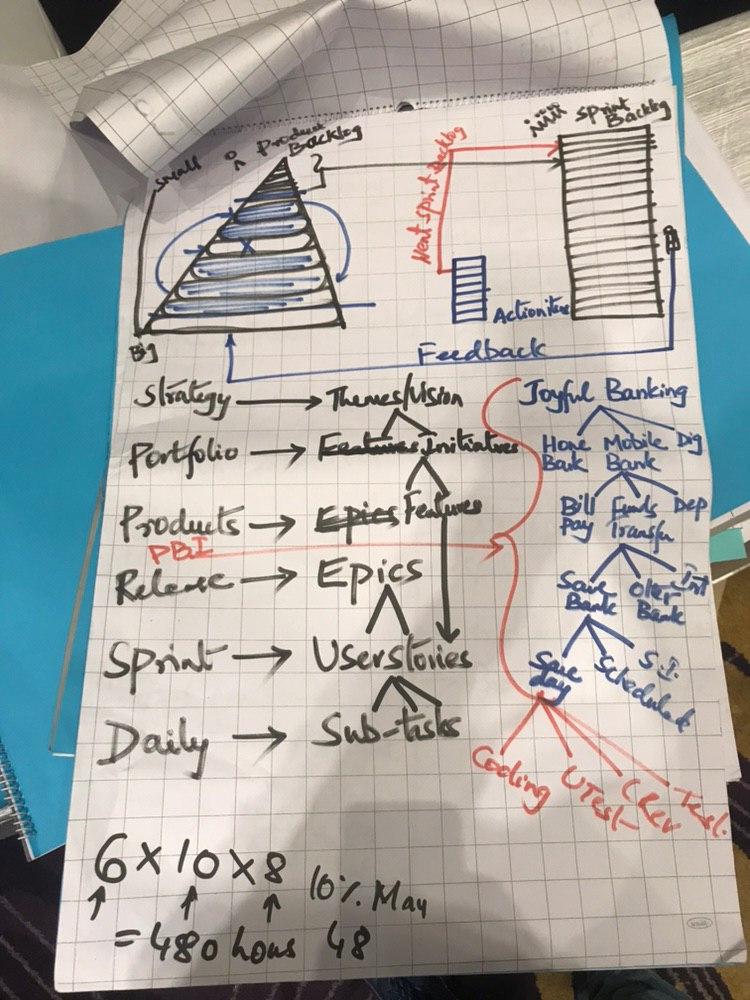 small
Product Backlog
Big
Next sprint Backlog
Sprint Backlog
Action item
Feedback
Strategy → Themes/Vision
Portfolio → Features Initiatives
Products → Epics Features
PBI
Release → Epics
Sprint → Userstories
Daily → Sub-tasks
Joyful Banking
Home Bank
Mobile Bank
Dig
Bill Pay
Funds Transfer
Dep
Same Bank
Other Bank
Int
Same day
Scheduled
S.I.
Coding
UTest
CRev
Test.
6 × 10 × 8
10% May
= 480 hours 48